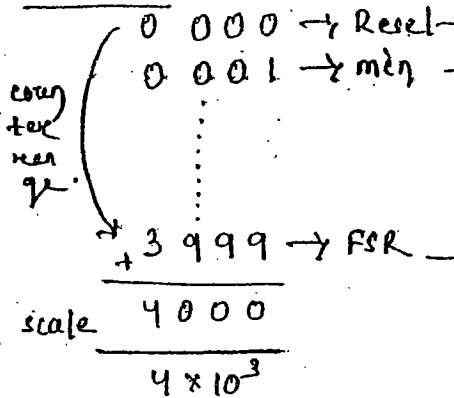 0 000 → Reset
0 001 → min
coun
ter
ran
ge.
+ 3 999 → FSR
scale 4000
4 × 10³